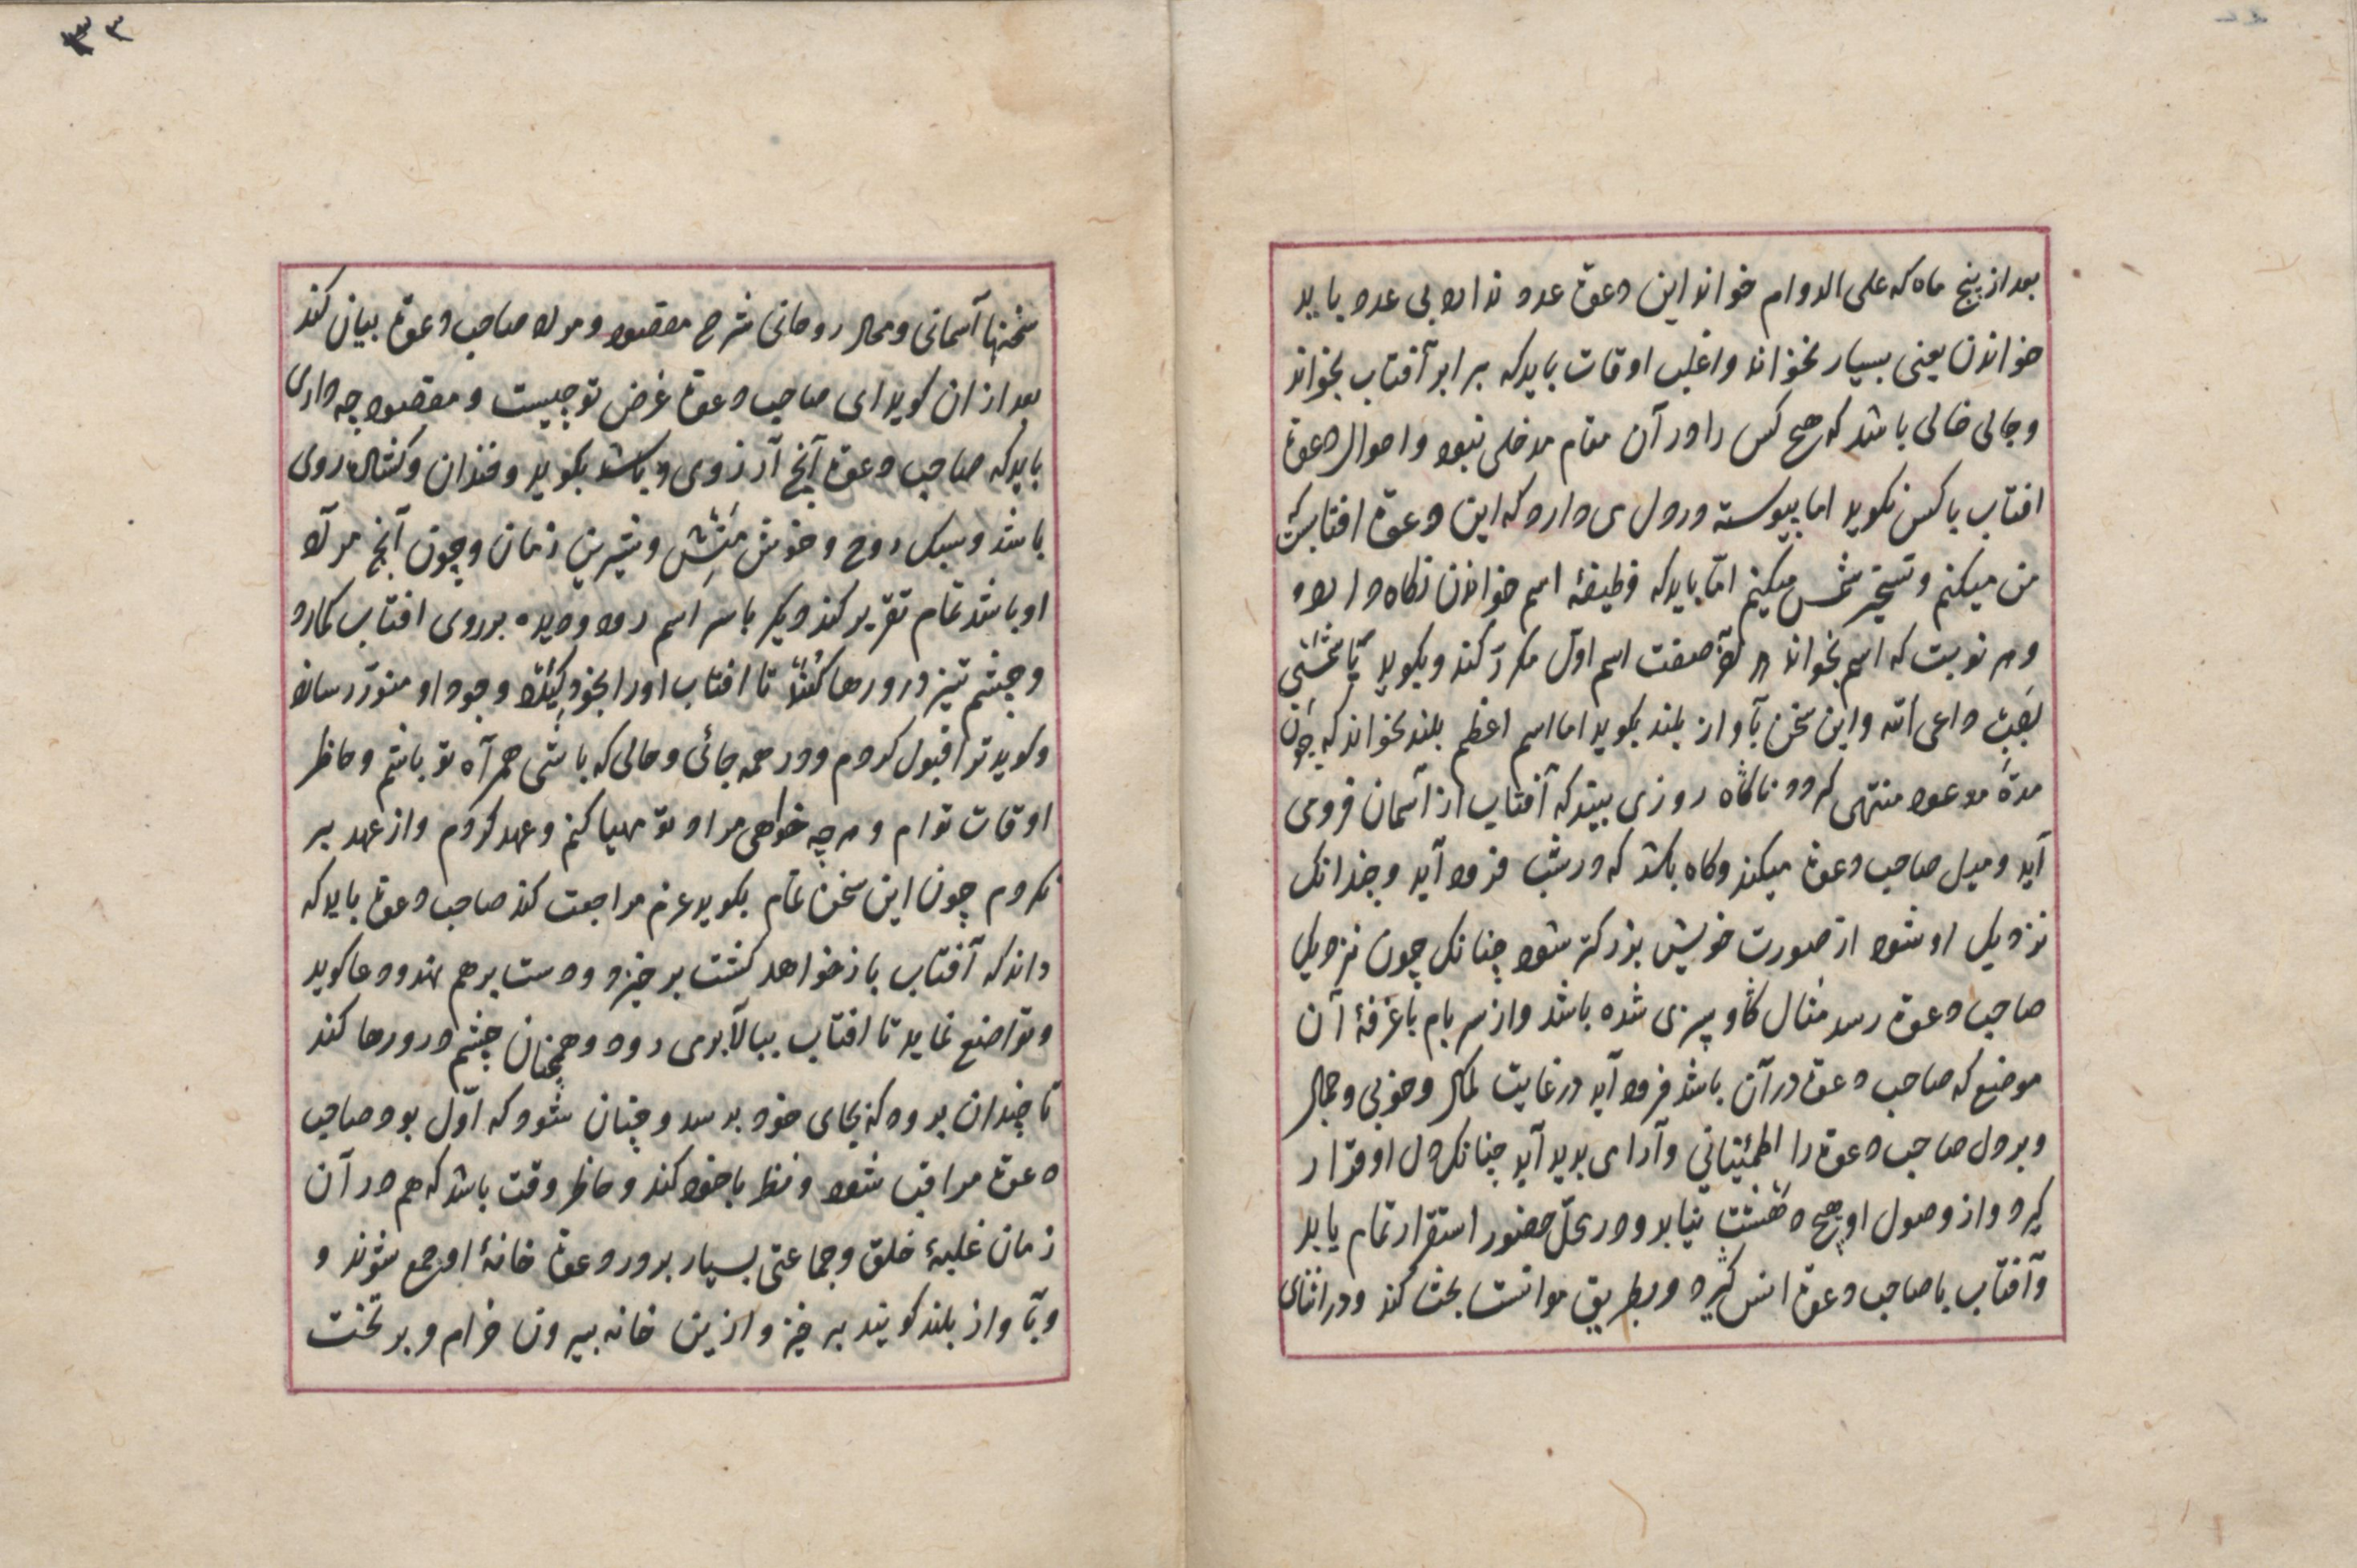 بعد از پنج ماه که علی الدوام خواند این دعوة عدد ندارد بی عدد باید
خواندن یعنی بسیار بخواند و اغلب اوقات باید که برابر آفتاب بخواند
و جائی خالی باشد که هیچ کس را در آن مقام مدخلی نبود و احوال دعوة
افتاب با کس نکوید اما پیوسته در دل می دارد که این دعوة افتابست که
من میکنم و تسخیر شمس میکنم امّا باید که وظیفهٔ اسم خواندن نکاه دارد
و هر نوبت که اسم بخواند صفت اسم اول مکرّر کند و بکوید یا شمخثی
بعثت داعی الله و این سخن بآواز بلند بکوید اما اسم اعظم بلند نخواند که چون
مدة موعود منتهی کردد ناکاه روزی بیند که آفتاب از آسمان فرو می
آید و میل صاحب دعوة میکند و کاه باشد که در شب فرود آید و چندانک
نزدیک او شود از صورت خویش بزرکتر شود چنانک چون نزدیک
صاحب دعوة رسد مثال کاو سپری شده باشد و از سر بام یا غرفهٔ آن
موضع که صاحب دعوة در آن باشد فرود آید در غایت کمال و خوبی و جمال
و بر دل صاحب دعوة را اطمئینانی و آرامی بدید آید چنانک دل او قرار
کیرد و از وصول او هیچ دهشت نیابد و در محلّ حضور استقرار تمام یابد
و آفتاب با صاحب دعوة انس کیرد و بطریق موانست بحث کند و در اثنای
۳۳
سخنها آسمانی و محال روحانی شرح مقصود و مراد صاحب دعوة بیان کند
بعد از ان کوید ای صاحب دعوة غرض تو چیست و مقصود چه داری
باید که صاحب دعوة آنچ آرزوی وی باشد بکوید و خندان و کشاده روی
باشد و سبک روح و خوش منش و شیرین زمان و چون آنچ مراد
او باشد تمام تقریر کند دیکر باسر اسم رود و دیده بر روی افتاب کمارد
و چشم تیز در و رها کند تا افتاب او را بخود کشد و وجود او منوّر رساند
و کوید ترا قبول کردم و در همه جائی و حالی که باشی همراه تو باشم و حاظر
اوقات توام و هر چه خواهی مراد تو مهیا کنم و عهد کردم و از عهد بر
نکردم چون این سخن تمام بکوید عزم مراجعت کند صاحب دعوة باید که
داند که آفتاب باز خواهد کشت بر خیزد و دست بر هم نهد و دعا کوید
و تواضع نماید تا افتاب ببالا برمی رود و همچنان چشم در و رها کند
تا چندان برود که بجای خود برسد و چنان شود که اوّل بود صاحب
دعوة مراقب شود و نظر با خود کند و حاظر وقت باشد که هم در آن
زمان غلبهٔ خلق و جماعتی بسیار بر در دعوة خانهٔ او جمع شوند و
و بآواز بلند کویند بر خیز و ازین خانه بیرون خرام و بر تخت